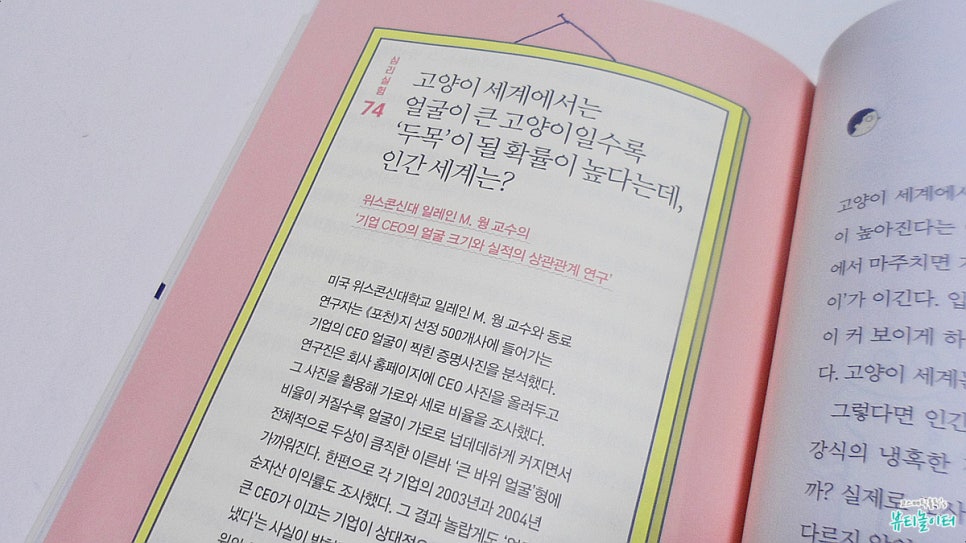 심리실험
74
고양이 세계에서는
얼굴이 큰 고양이일수록
‘두목’이 될 확률이 높다는데,
인간 세계는?
위스콘신대 일레인 M. 웡 교수의
‘기업 CEO의 얼굴 크기와 실적의 상관관계 연구’
미국 위스콘신대학교 일레인 M. 웡 교수와 동료
연구자는 《포천》지 선정 500개사에 들어가는
기업의 CEO 얼굴이 찍힌 증명사진을 분석했다.
연구진은 회사 홈페이지에 CEO 사진을 올려두고
그 사진을 활용해 가로와 세로 비율을 조사했다.
비율이 커질수록 얼굴이 가로로 넙데데하게 커지면서
전체적으로 두상이 큼직한 이른바 ‘큰 바위 얼굴’형에
가까워진다. 한편으로 각 기업의 2003년과 2004년
순자산 이익률도 조사했다. 그 결과 놀랍게도
큰 CEO가 이끄는 기업이 상대적으
냈다’는 사실이
고양이 세계에서
이 높아진다는
에서 마주치면
이’가 이긴다. 입
이 커 보이게 하
다. 고양이 세계는
그렇다면 인간
강식의 냉혹한
까? 실제로
다르지 않
뷰티놀이터